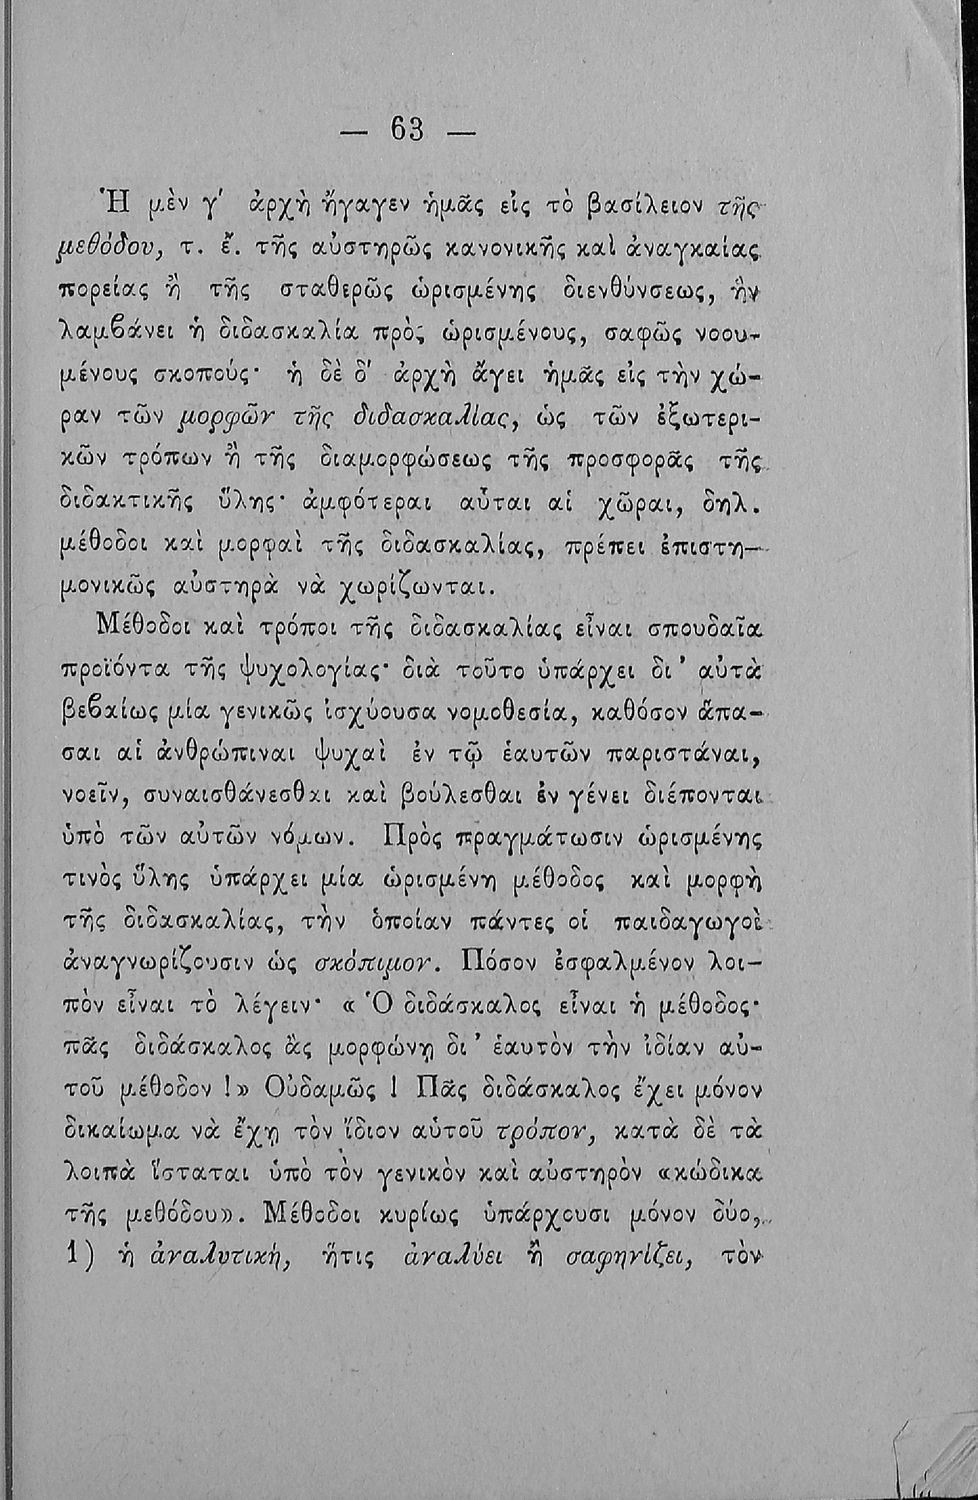 — 63 —
Ἡ μὲν γ′ ἀρχὴ ἤγαγεν ἡμᾶς εἰς τὸ βασίλειον τῆς
μεθόδου, τ. ἔ. τῆς αὐστηρῶς κανονικῆς καὶ ἀναγκαίας
πορείας ἢ τῆς σταθερῶς ὡρισμένης διενθύνσεως, ἣν
λαμβάνει ἡ διδασκαλία πρὸς ὡρισμένους, σαφῶς νοου-
μένους σκοπούς· ἡ δὲ δ′ ἀρχὴ ἄγει ἡμᾶς εἰς τὴν χώ-
ραν τῶν μορφῶν τῆς διδασκαλίας, ὡς τῶν ἐξωτερι-
κῶν τρόπων ἢ τῆς διαμορφώσεως τῆς προσφορᾶς τῆς
διδακτικῆς ὕλης· ἀμφότεραι αὗται αἱ χῶραι, δηλ.
μέθοδοι καὶ μορφαὶ τῆς διδασκαλίας, πρέπει ἐπιστη—
μονικῶς αὐστηρὰ νὰ χωρίζωνται.
Μέθοδοι καὶ τρόποι τῆς διδασκαλίας εἶναι σπουδαῖα
προϊόντα τῆς ψυχολογίας· διὰ τοῦτο ὑπάρχει δι’ αὐτὰ
βεβαίως μία γενικῶς ἰσχύουσα νομοθεσία, καθόσον ἅπα-
σαι αἱ ἀνθρώπιναι ψυχαὶ ἐν τῷ ἑαυτῶν παριστάναι,
νοεῖν, συναισθάνεσθαι καὶ βούλεσθαι ἐν γένει διέπονται
ὑπὸ τῶν αὐτῶν νόμων. Πρὸς πραγμάτωσιν ὡρισμένης
τινὸς ὕλης ὑπάρχει μία ὡρισμένη μέθοδος καὶ μορφὴ
τῆς διδασκαλίας, τὴν ὁποίαν πάντες οἱ παιδαγωγοὶ
ἀναγνωρίζουσιν ὡς σκόπιμον. Πόσον ἐσφαλμένον λοι—
πὸν εἶναι τὸ λέγειν· « Ὁ διδάσκαλος εἶναι ἡ μέθοδος·
πᾶς διδάσκαλος ἂς μορφώνῃ δι’ ἑαυτὸν τὴν ἰδίαν αὑ-
τοῦ μέθοδον !» Οὐδαμῶς ! Πᾶς διδάσκαλος ἔχει μόνον
δικαίωμα νὰ ἔχῃ τὸν ἴδιον αὑτοῦ τρόπον, κατὰ δὲ τὰ
λοιπὰ ἵσταται ὑπὸ τὸν γενικὸν καὶ αὐστηρὸν «κώδικα
τῆς μεθόδου». Μέθοδοι κυρίως ὑπάρχουσι μόνον δύο,
1) ἡ ἀναλυτικὴ, ἥτις ἀναλύει ἢ σαφηνίζει, τὸν